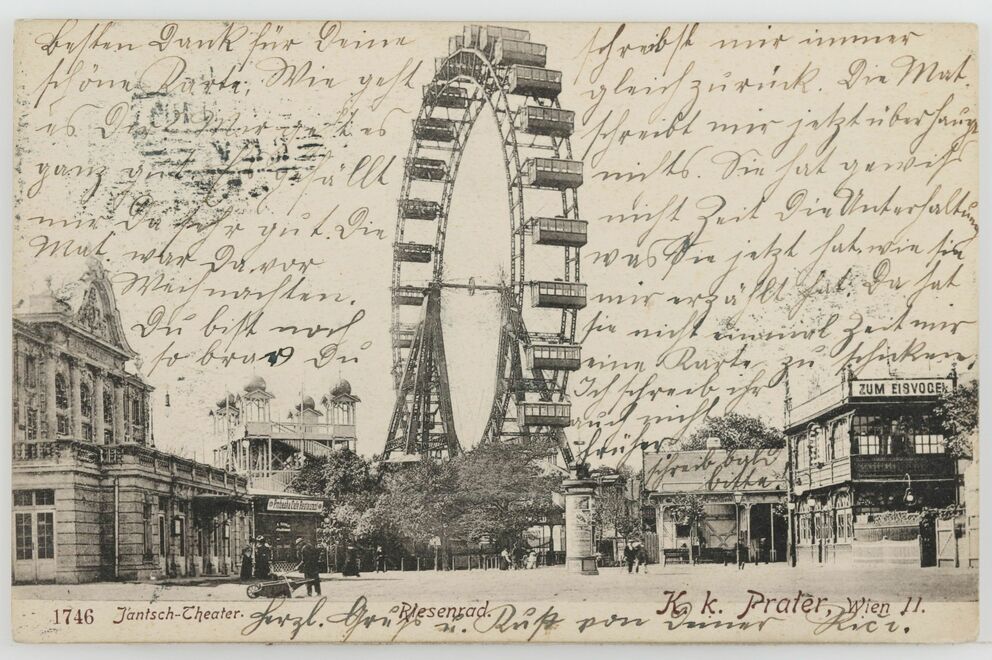 Besten Dank für Deine
schöne Karte. Wie geht
es Dir? Mir geht es
ganz gut. Hier gefällt
mir Da sehr gut. Die
Mat. war Da vor
Weihnachten.
Du bist noch
so brav Du
schreibst mir immer
gleich zurück. Die Mat.
schreibt mir jetzt überhaupt
nichts. Sie hat gewiß
nicht Zeit Die Unterhaltung
was Sie jetzt hat wie sie
mir erzählt hat. Da hat
sie nicht einmal Zeit mir
eine Karte zu schicken.
Ich schreib ihr
auch nicht
früher
schreib bald
bitte.
ZUM EISVOGEL
1746 Jantsch-Theater. Riesenrad. K. k. Prater, Wien II.
Herzl. Gruß u. Kuß von Deiner